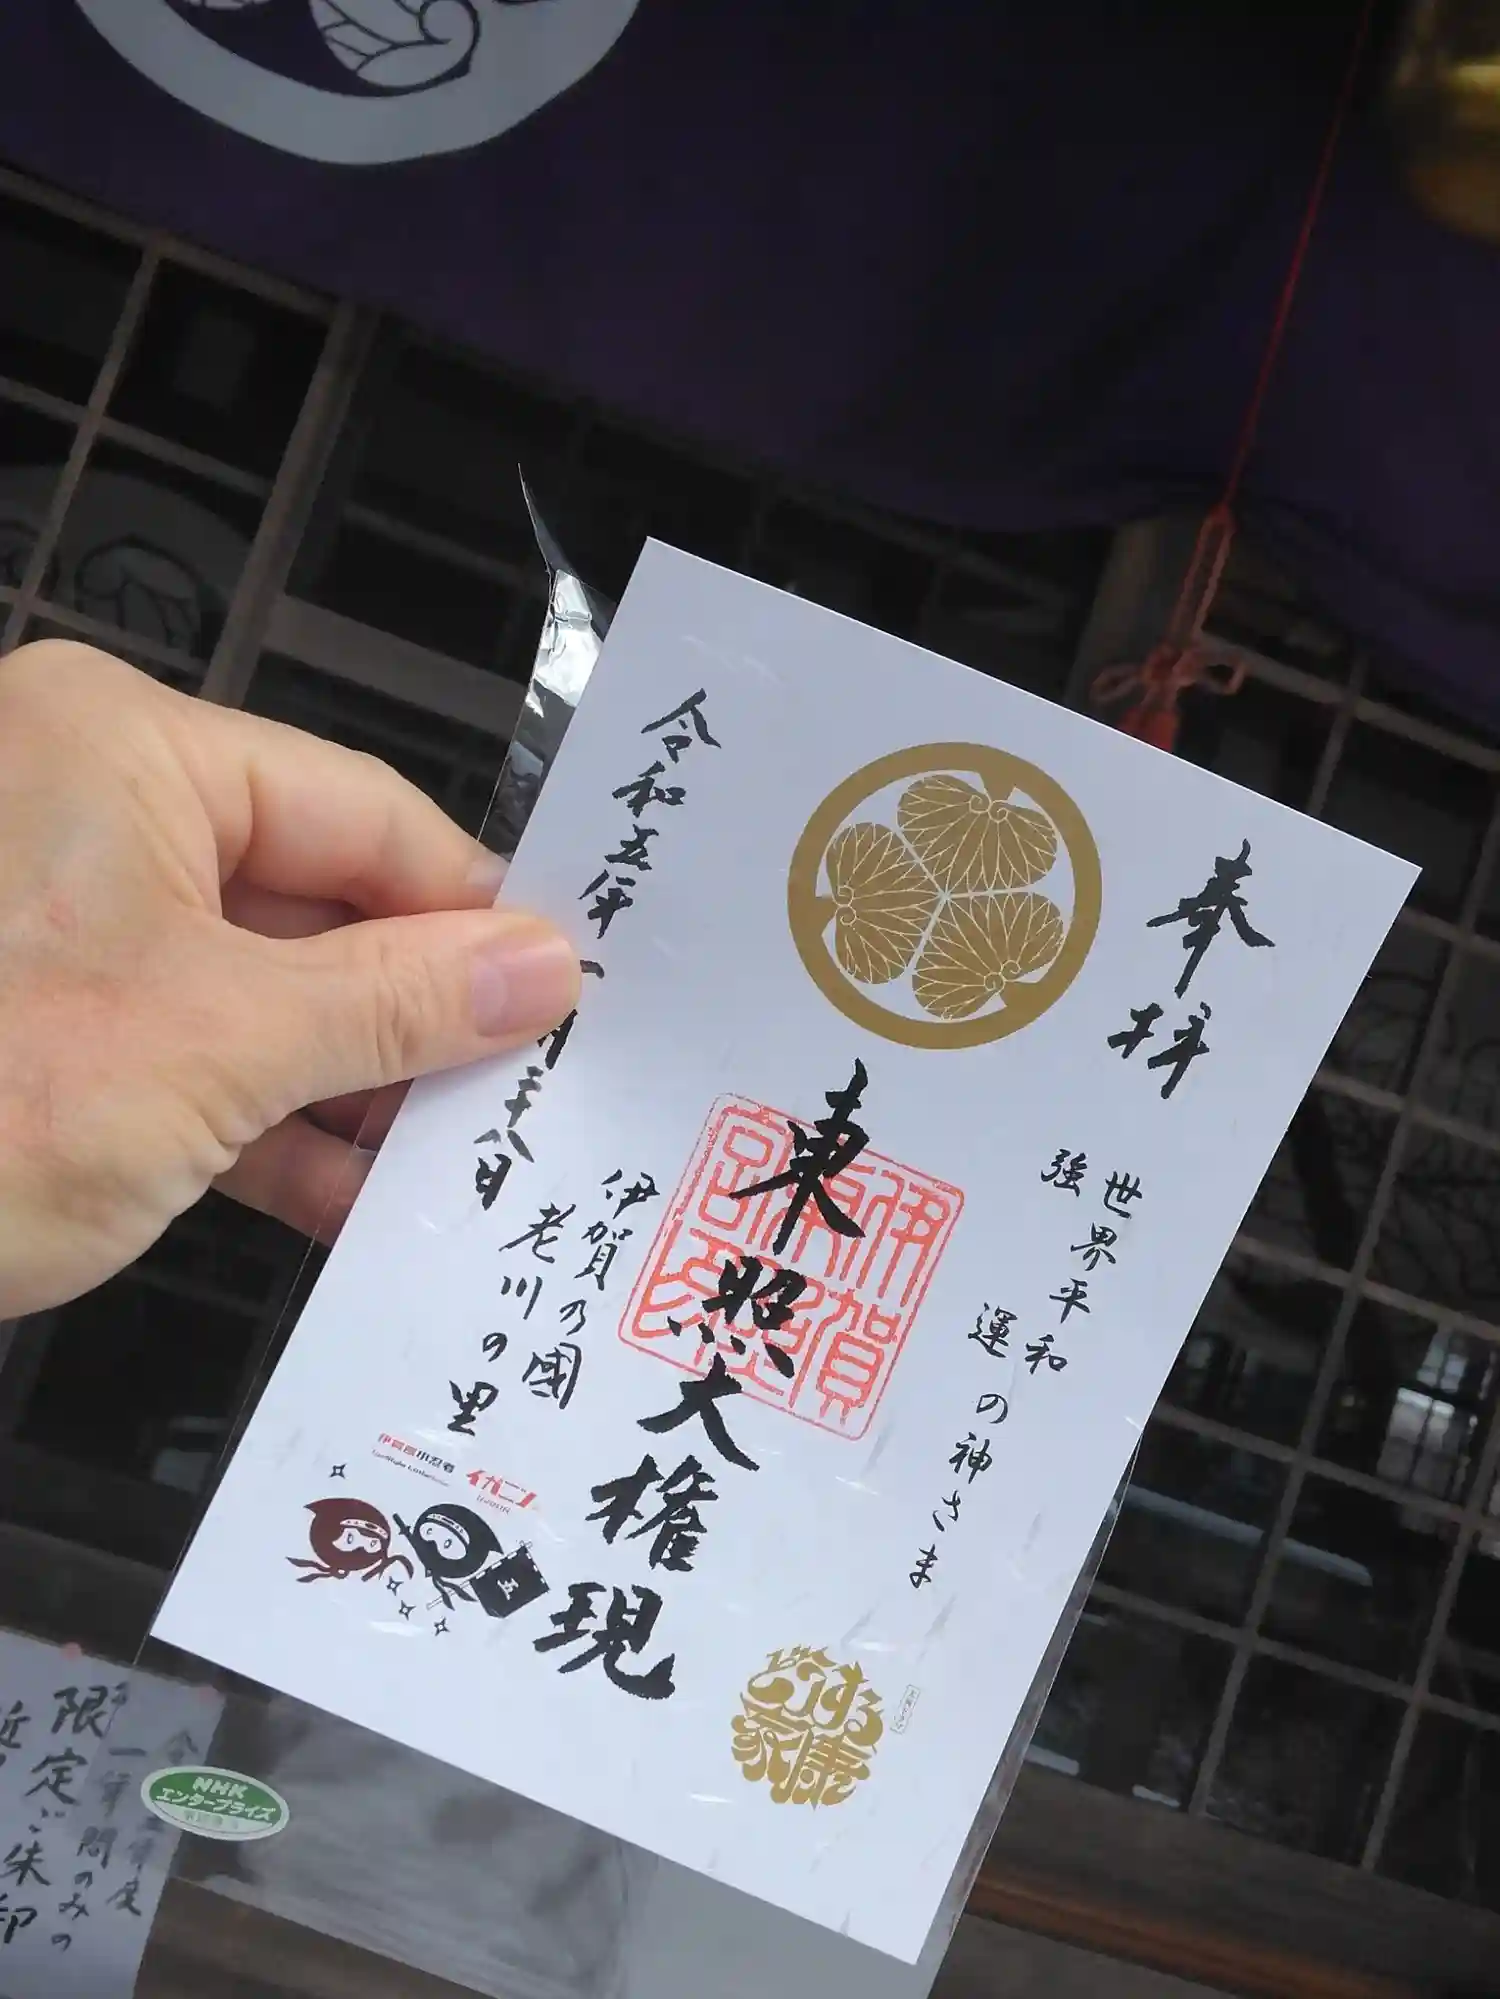 奉拝
世界平和
強運の神さま
東照大権現
伊賀東照宮
伊賀乃國
老川の里
令和五年一月二十八日
イガニン
五
どうする家康
NHK
エンタープライズ
一年間のみの
限定ご朱印